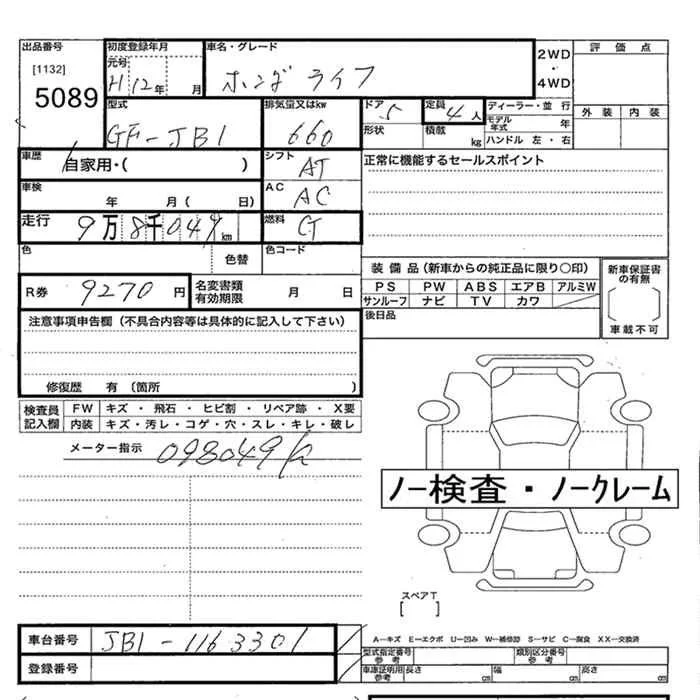 出品番号 初度登録年月 車名・グレード 2WD・4WD 評価点
[1132] 元号
5089 H12年 月 ホンダ ライフ
型式 排気量又はkw ドア 5 定員 4人 ディーラー・並行 外装 内装
GF-JB1 660 形状 積載 kg モデル年式 年
ハンドル 左・右
車歴 自家用・( ) シフト AT 正常に機能するセールスポイント
車検 年 月( 日) AC AC
走行 9万8千049km 燃料 G
色 色替 色コード
装備品(新車からの純正品に限り○印) 新車保証書の有無
R券 9270円 名変書類有効期限 月 日 PS PW ABS エアB アルミW
サンルーフ ナビ TV カワ
車載不可
注意事項申告欄(不具合内容等は具体的に記入して下さい) 後日品
修復歴 有(箇所 )
検査員記入欄 FW キズ・飛石・ヒビ割・リペア跡・X要
内装 キズ・汚レ・コゲ・穴・スレ・キレ・破レ
メーター指示 098049k
ノー検査・ノークレーム
スペアT
[ ]
車台番号 JB1-1163301 A-キズ E-エクボ U-凹み W-補修跡 S-サビ C-腐食 XX-交換済
登録番号 型式指定番号参考 類別区分番号参考
車庫証明用参考 長さ cm 幅 cm 高さ cm